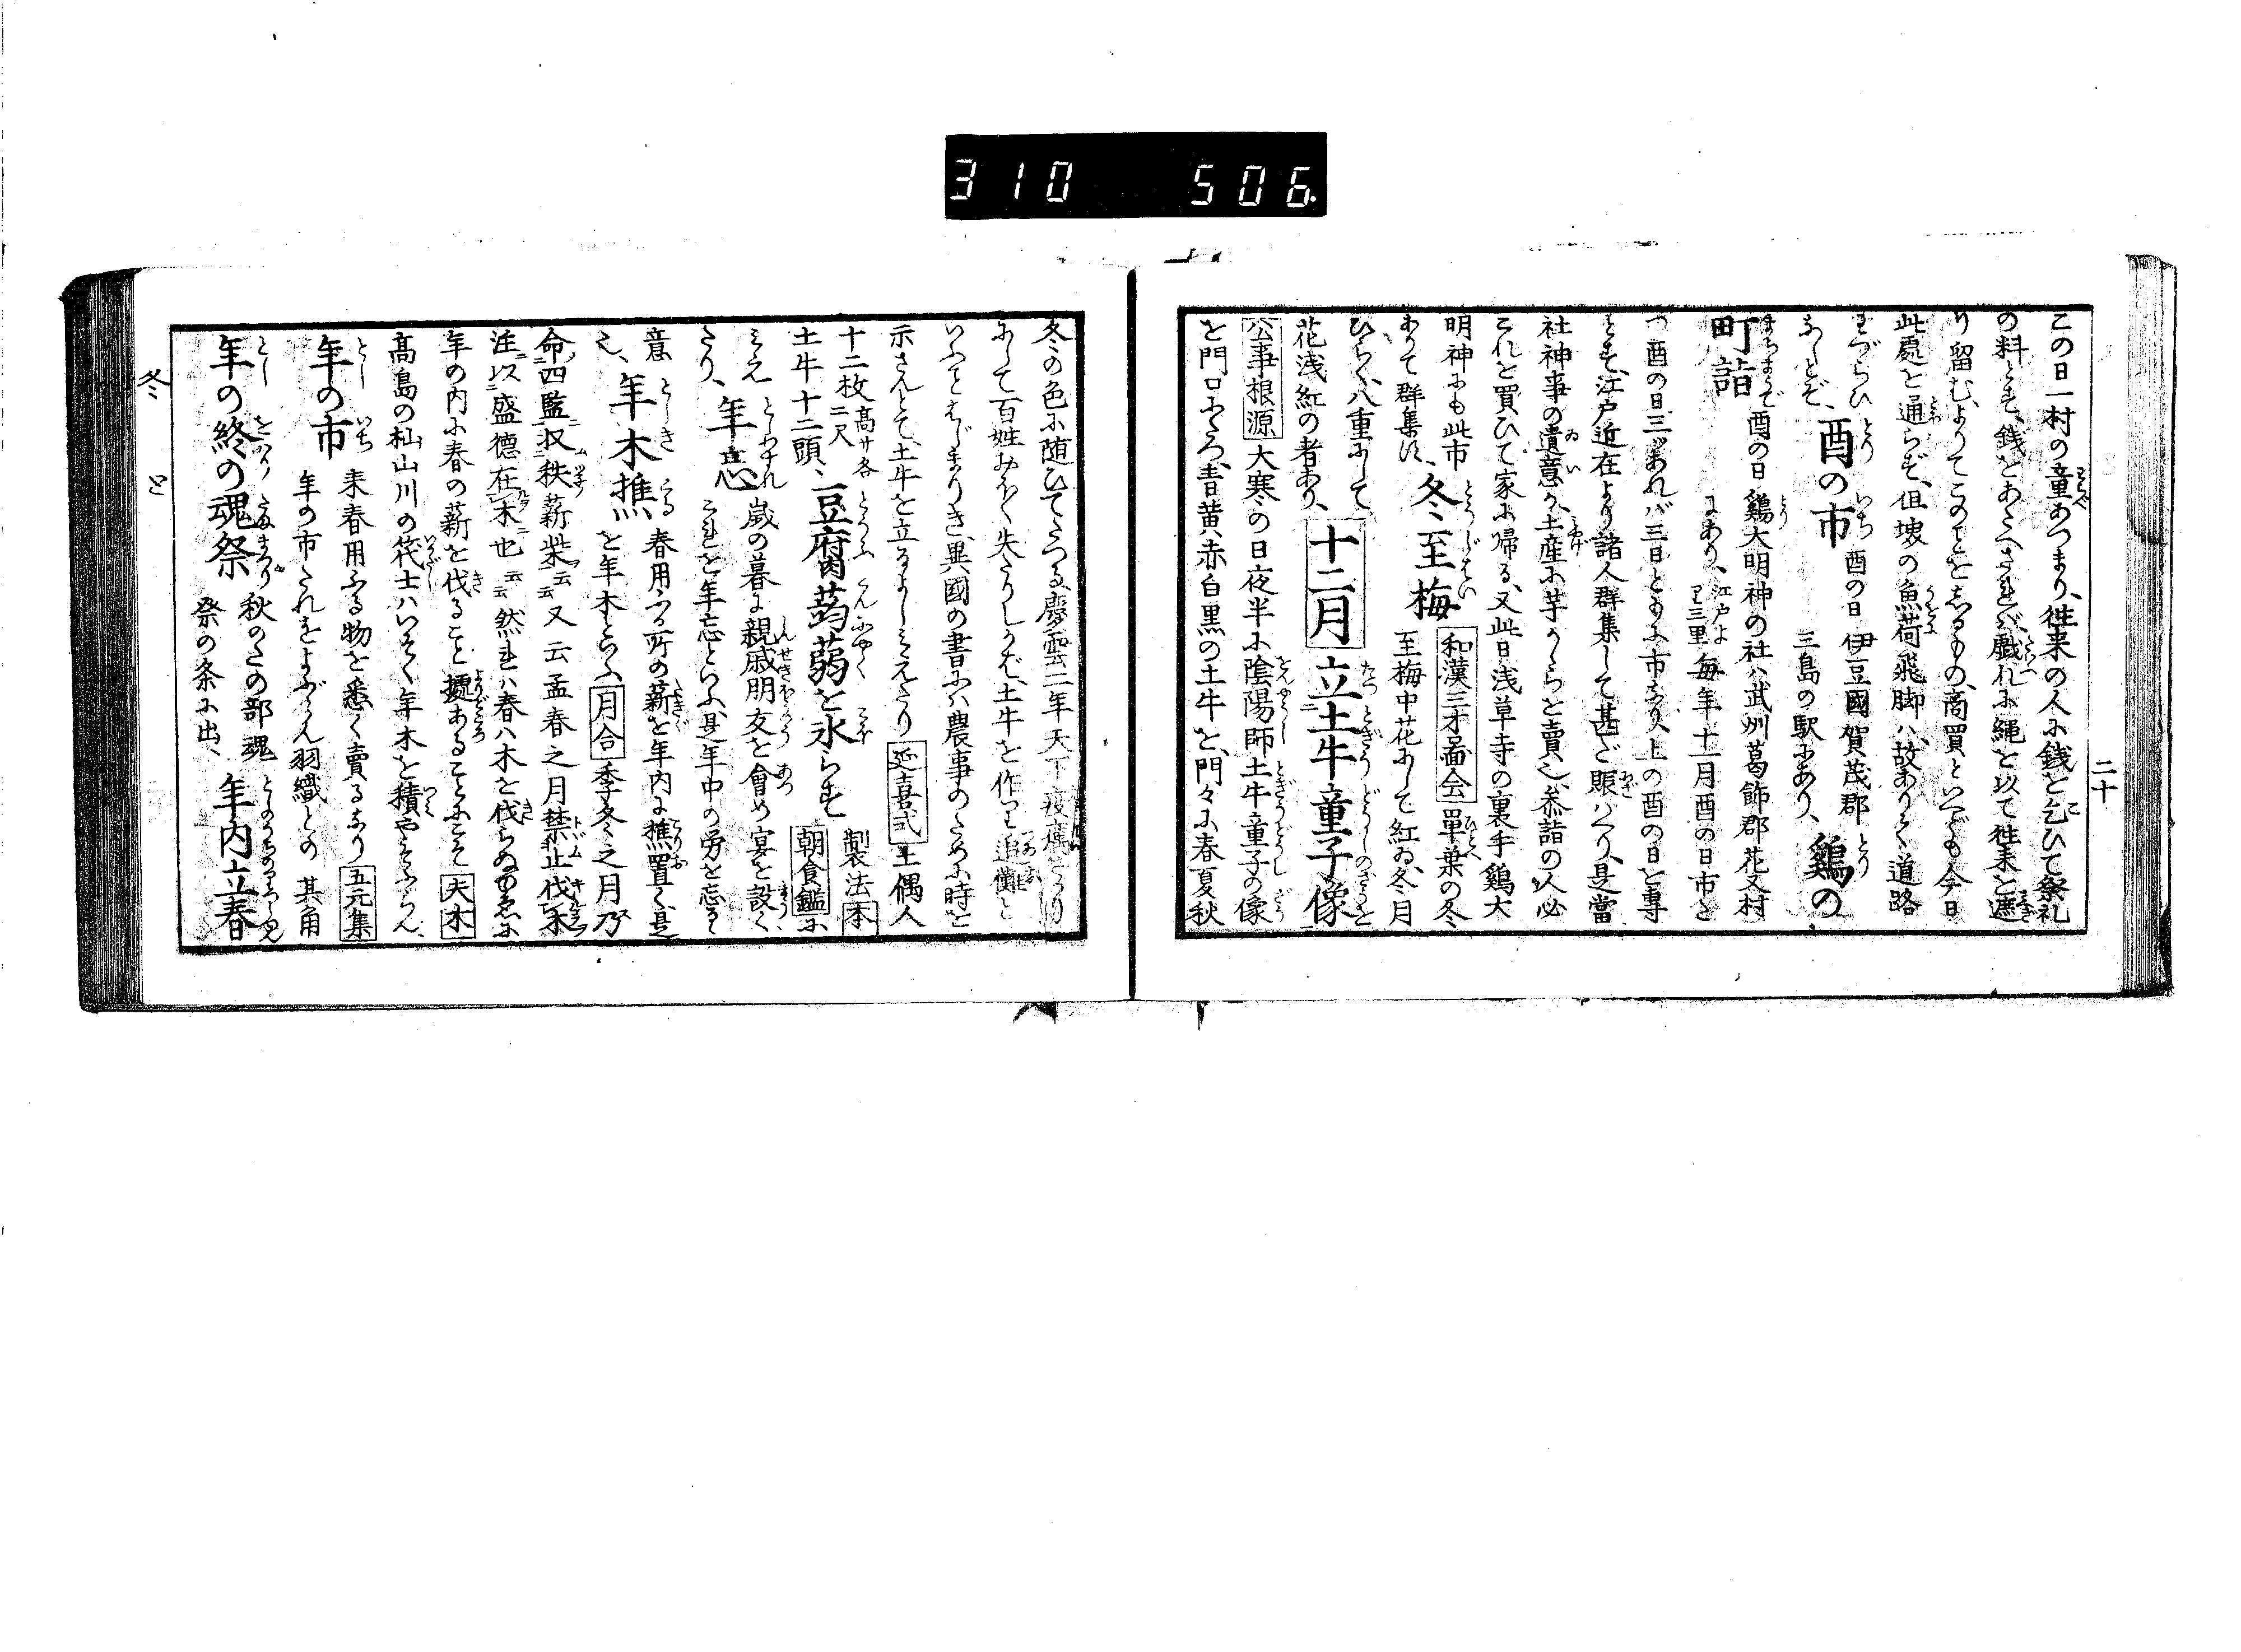 310 506
二十
この日一村の童あつまり、徃来の人に銭を乞ひて祭礼
の料とす、銭をあたへされバ、戯れに縄を以て徃来を遮
り留む、よりてこのことをしるもの、商買といへども今日
此處を通らず、但 の魚荷飛脚ハ、故ありて道路
わづらひなしとぞ、
酉の市 酉の日 伊豆國賀茂郡三島の駅にあり、
鷄の町詣 酉の日 鷄大明神の社ハ武州葛飾郡花又村
にあり、江戸より三里 毎年十一月酉の日市を
つ 酉の日三ツあれバ三日ともに市なり、上の酉の日を専
とす、江戸近在より諸人群集して甚だ賑ハへり、是當
社神事の遺意か、土産に芋がらを賣也、参詣の人必
これを買ひて家に帰る、又此日浅草寺の裏手鷄大
明神にも此市ありて群集す、
冬至梅 和漢三才圖会 單葉の冬
至梅中花にして紅ゐ、冬月
ひらく、八重にして
花浅紅の者あり、
十二月
立土牛童子像
公事根源 大寒の日夜半に陰陽師土牛童子の像
を門口にたつ、青黄赤白黒の土牛を、門々に春夏秋
冬の色に随ひてたつる、慶雲二年天下疫癘さかり
にして百姓おほく失たりしかば、土牛を作りて追儺と
いふことはじまりき、異國の書にハ農事のために時を
示さんとて、土牛を立るよしみえたり 延喜式 土偶人
十二枚高サ各二尺
土牛十二頭、
豆腐蒟蒻を氷らす 製法本朝食鑑に
みえたり、
年忘 歳の暮に親戚朋友を會め宴を設く、
これを年忘といふ、是年中の労を忘るゝ
意也、
年木樵 春用ふる所の薪を年内に樵置く、是
を年木といふ 月令 季冬之月乃
命四監収秩薪柴云云又云孟春之月禁止伐木
注以盛德在木也云云然れハ春ハ木を伐らぬゆゑに
年の内に春の薪を伐ること據あることにこそ 夫木
高島の杣山川の筏士ハいそく年木を積やそふらん、
年の市 来春用ふる物を悉く賣るなり 五元集
年の市たれをよぶらん羽織との 其角
年の終の魂祭 秋のたの部魂
祭の条に出、
年内立春
冬 と